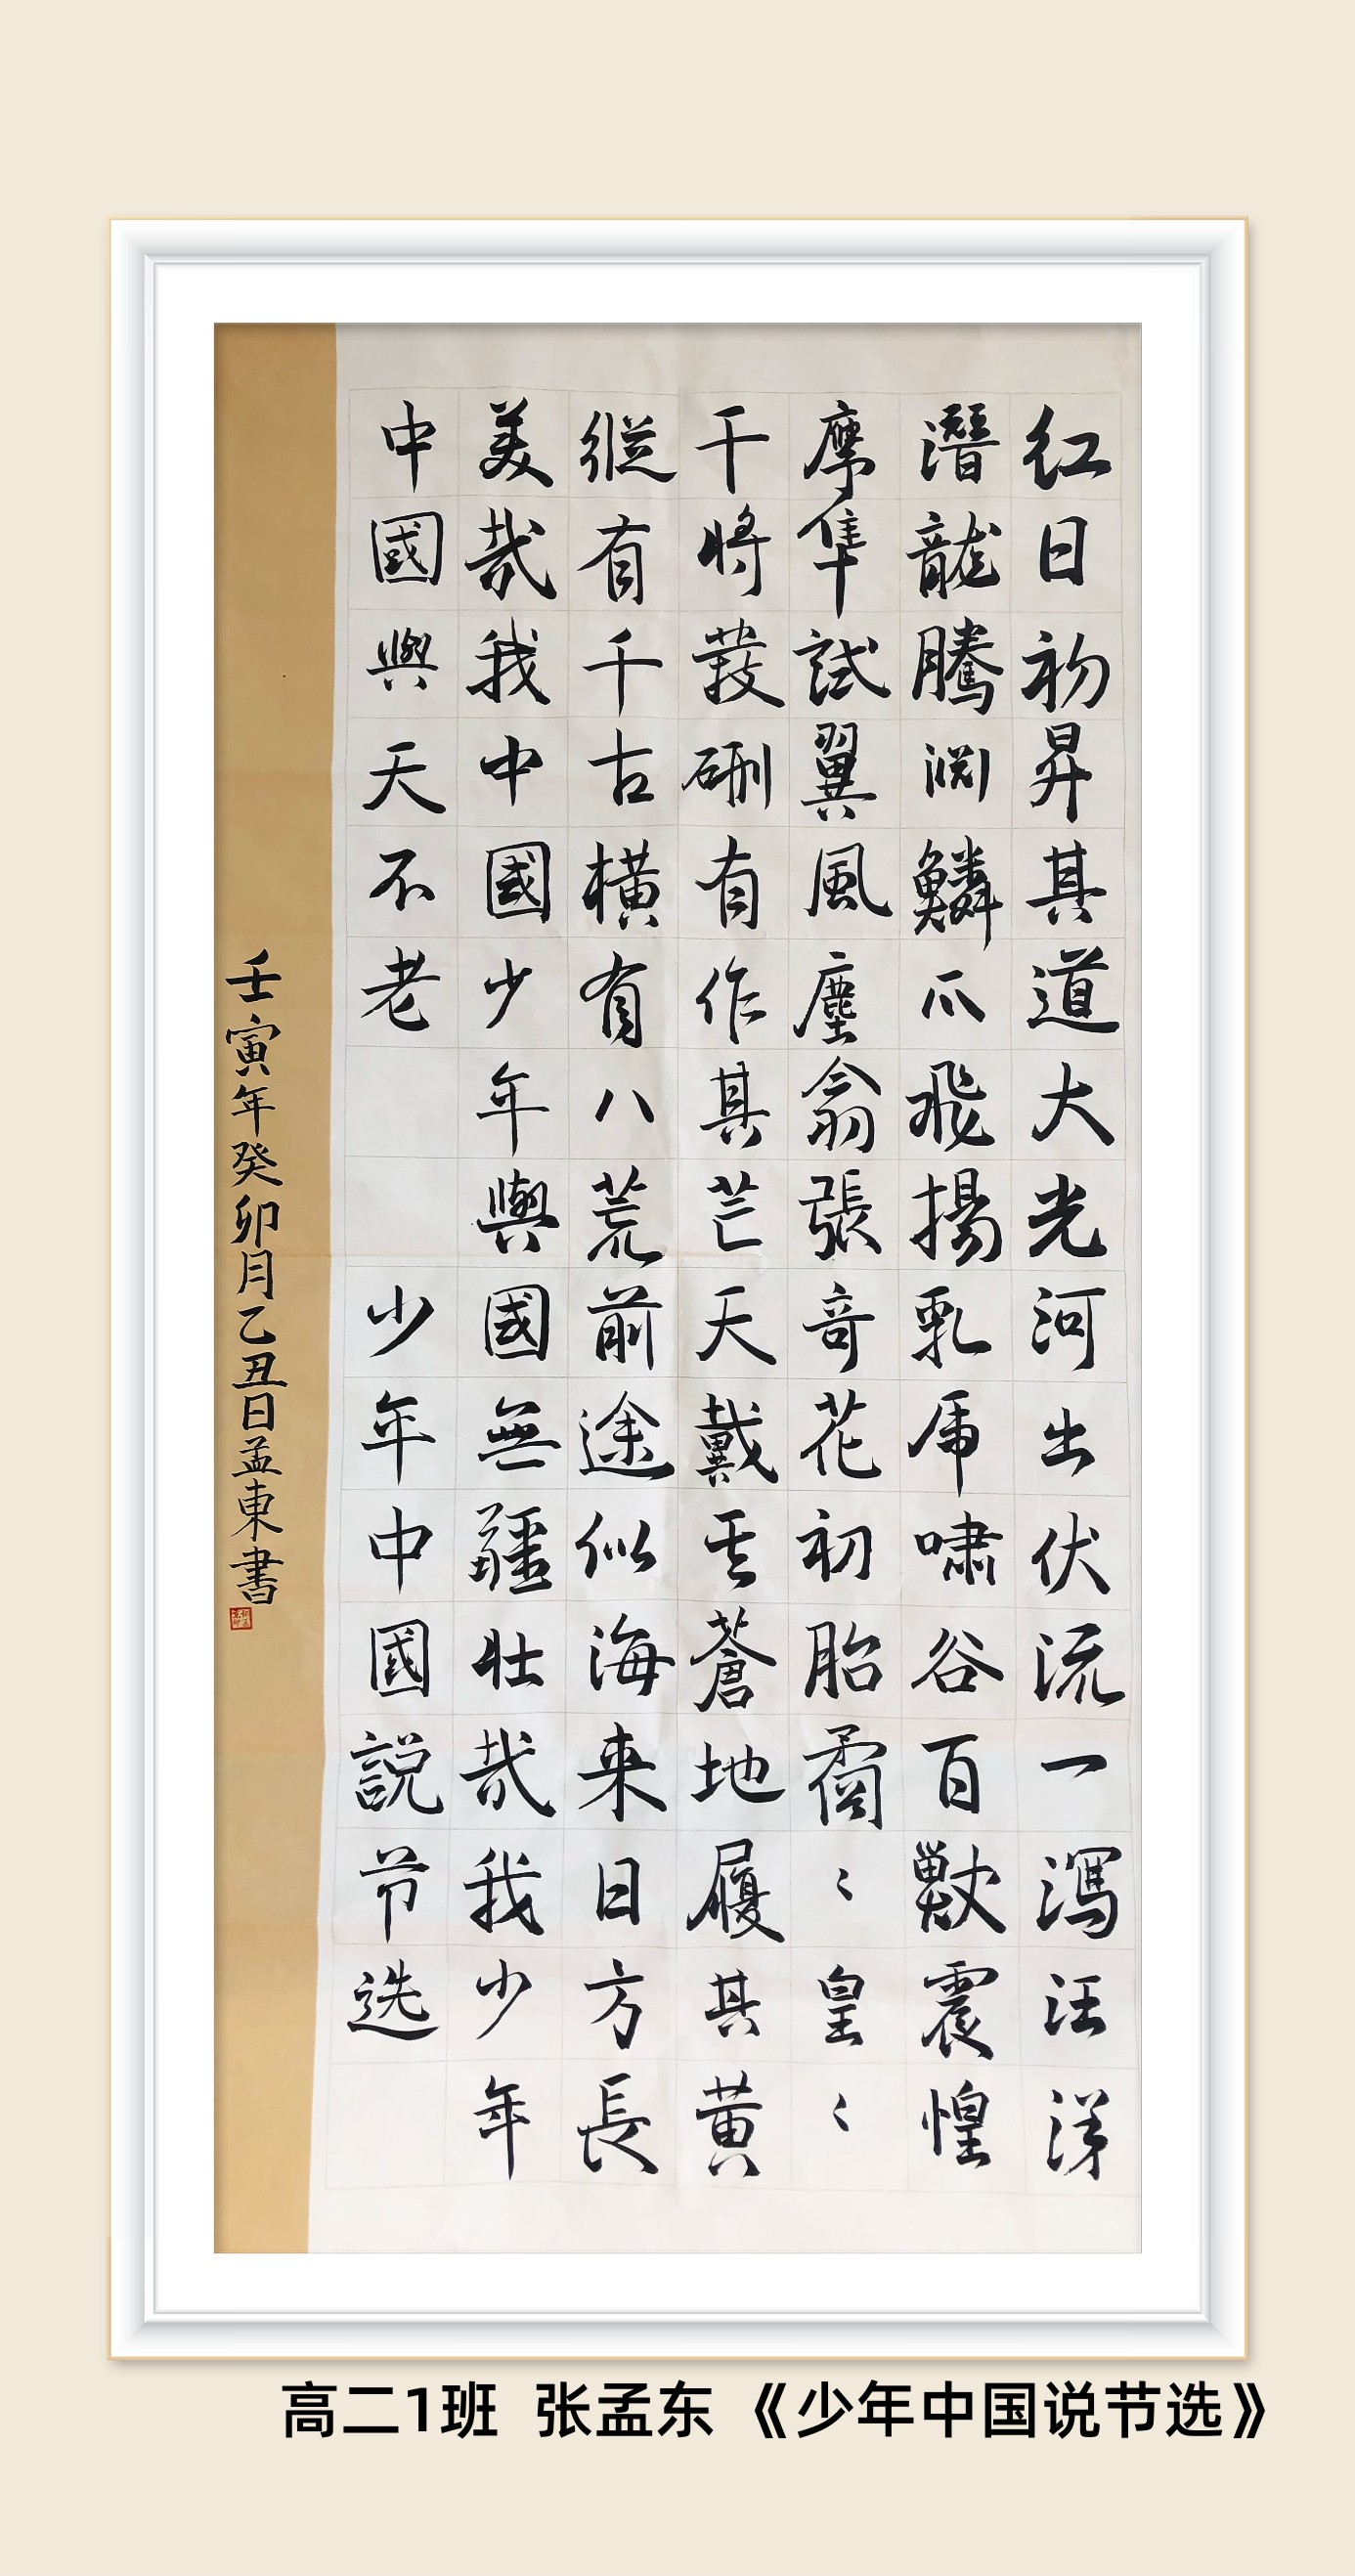 红日初昇其道大光河出伏流一瀉汪洋
潛龍騰淵鱗爪飛揚乳虎啸谷百獸震惶
鷹隼試翼風塵翕張奇花初胎矞〻皇〻
干將發硎有作其芒天戴其蒼地履其黄
縱有千古橫有八荒前途似海来日方長
美哉我中國少年與國無疆壯哉我少年
中國與天不老 少年中國説节选
壬寅年癸卯月乙丑日孟東書
高二1班 张孟东《少年中国说节选》